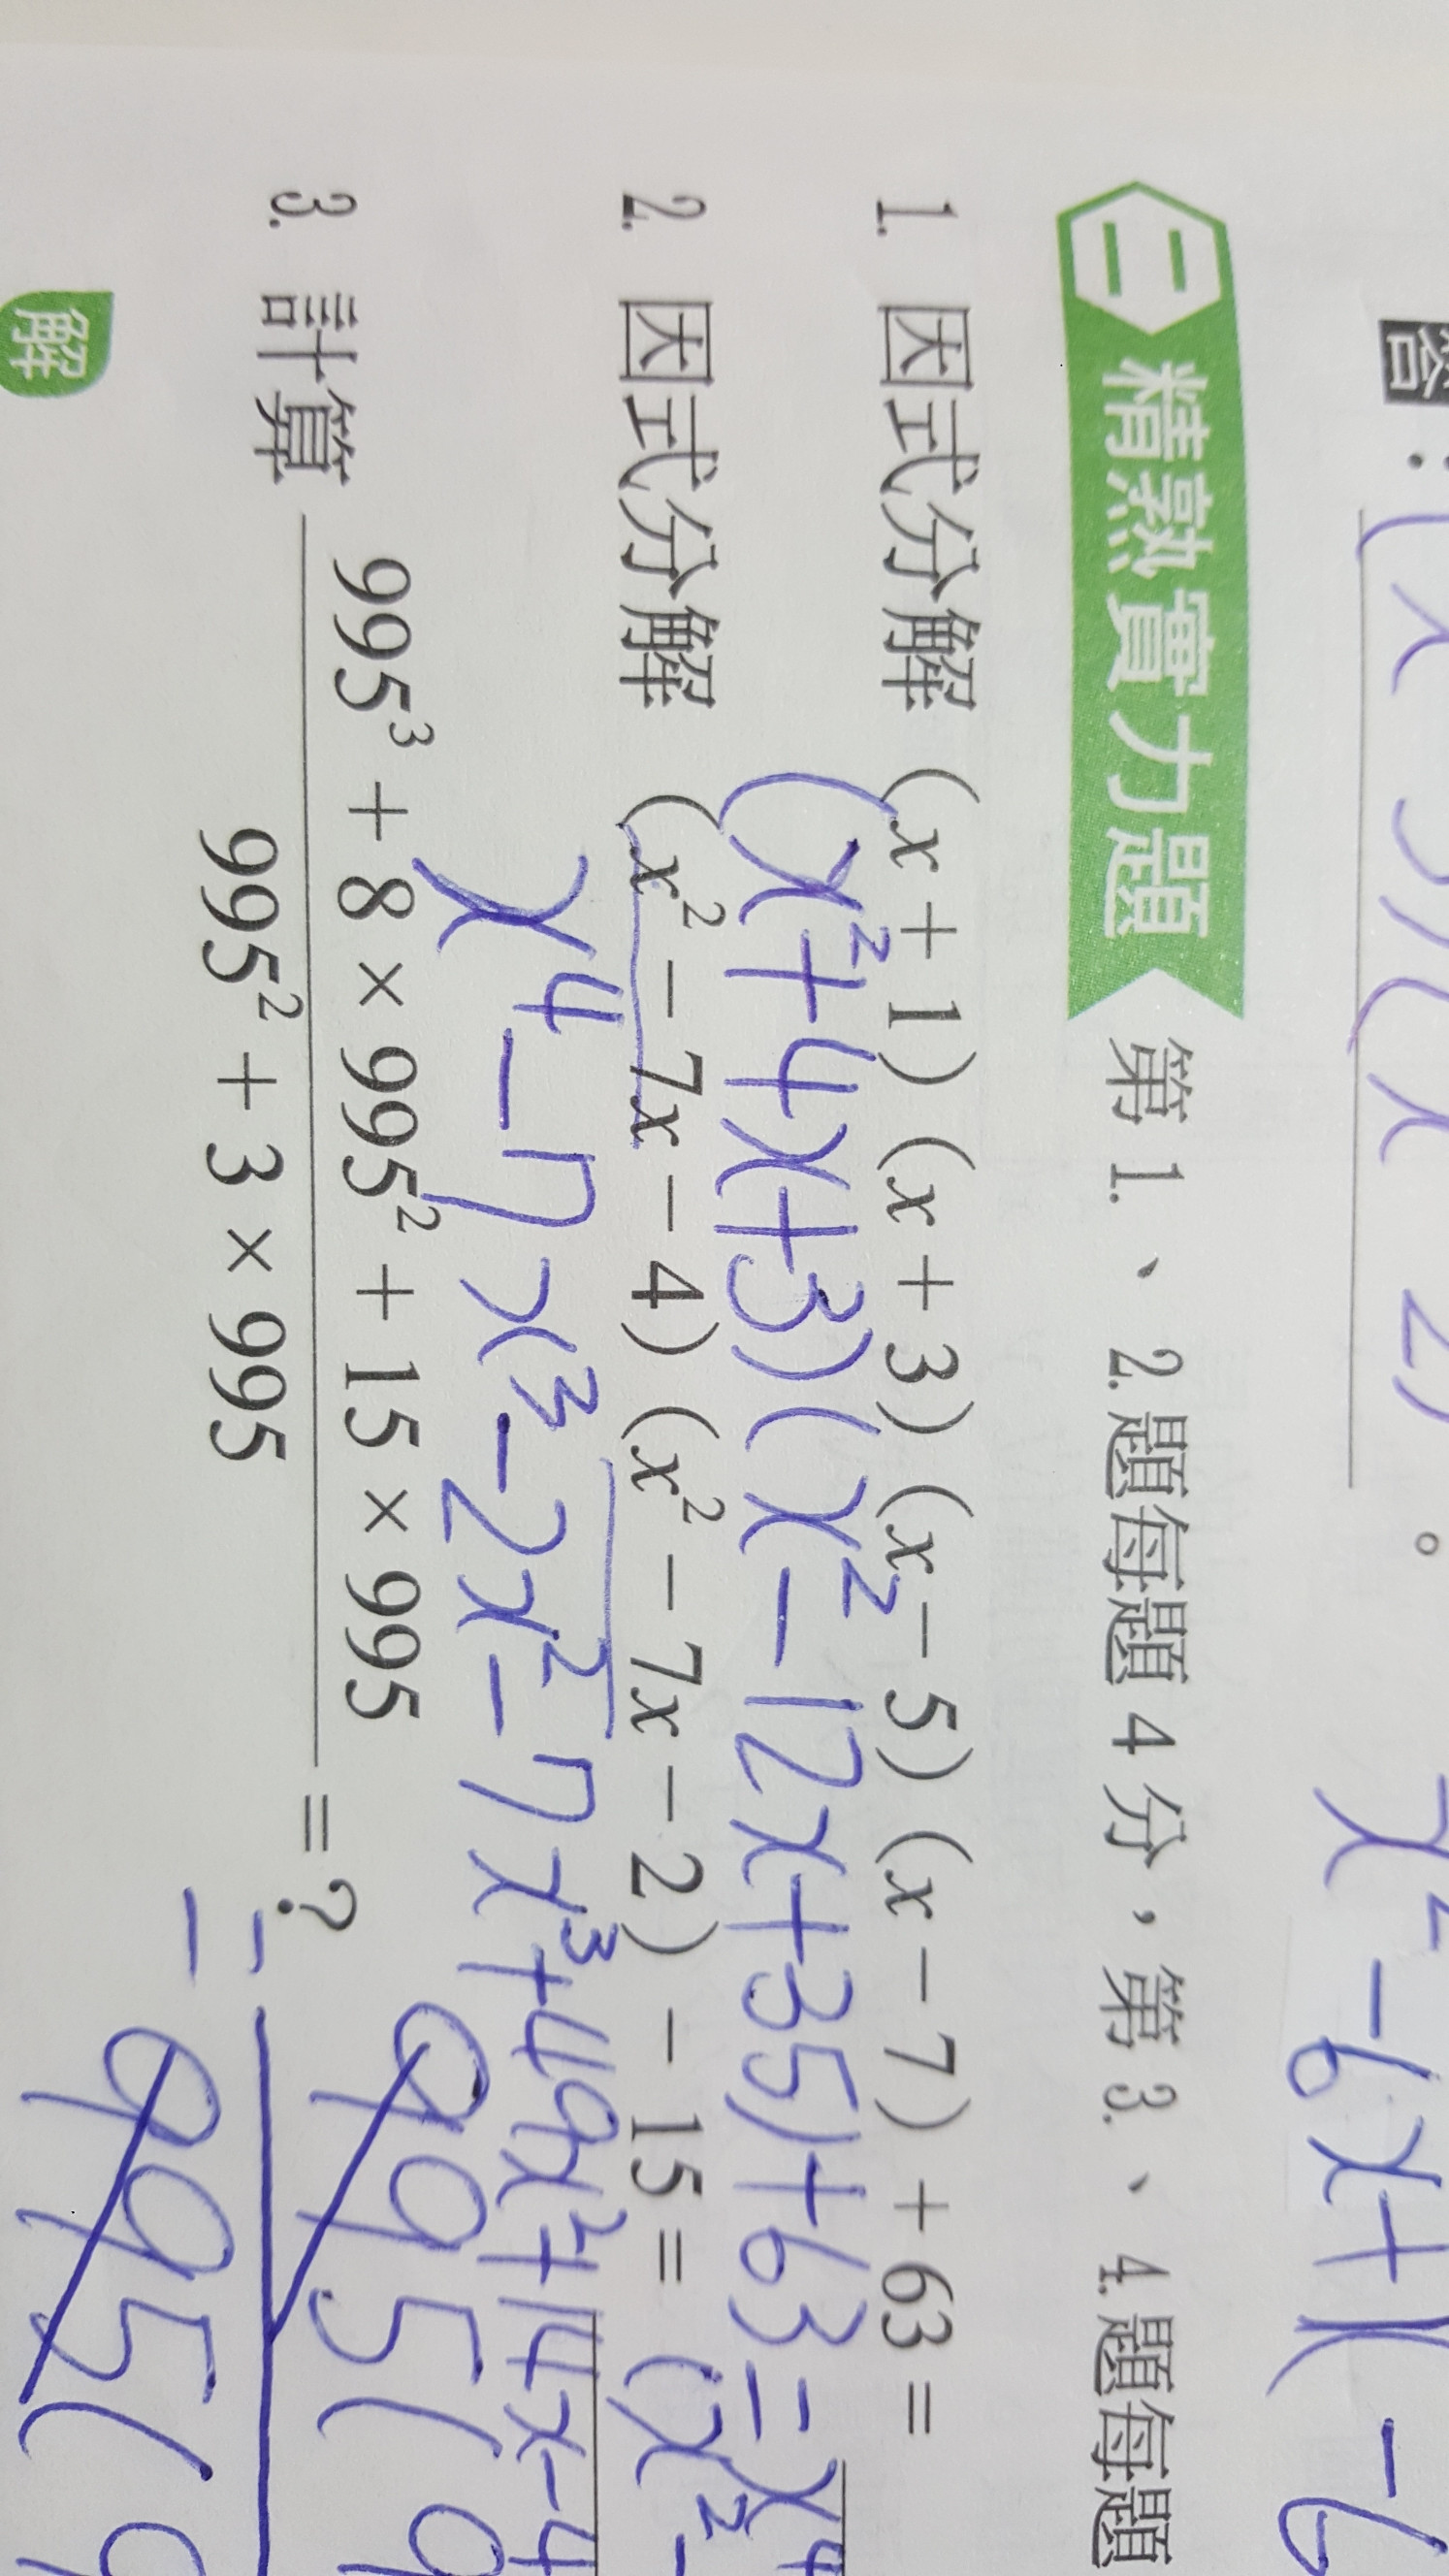 答：(x-3)(x-2)。 x²-6x+
-6
二 精熟實力題 第 1.、2.題每題 4 分，第 3.、4.題每題
1. 因式分解 (x+1)(x+3)(x-5)(x-7)+63=
(x²+4x+3)(x²-12x+35)+63=x⁴
2. 因式分解 (x²-7x-4)(x²-7x-2)-15= (x²-
x⁴-7x³-2x²-7x³+49x²+14x-4
3. 計算 \frac{995³+8×995²+15×995}{995²+3×995} =?
= \frac{995(9}{995(9}
解